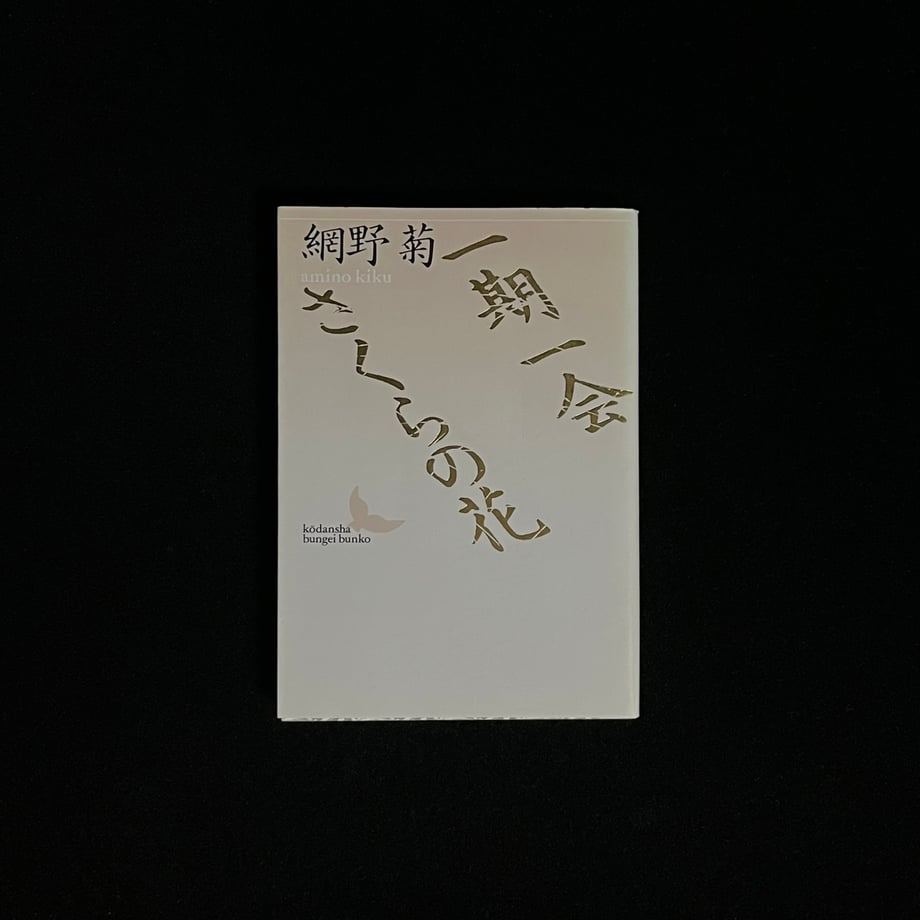 網野 菊
amino kiku
一期一会
さくらの花
kōdansha
bungei bunko